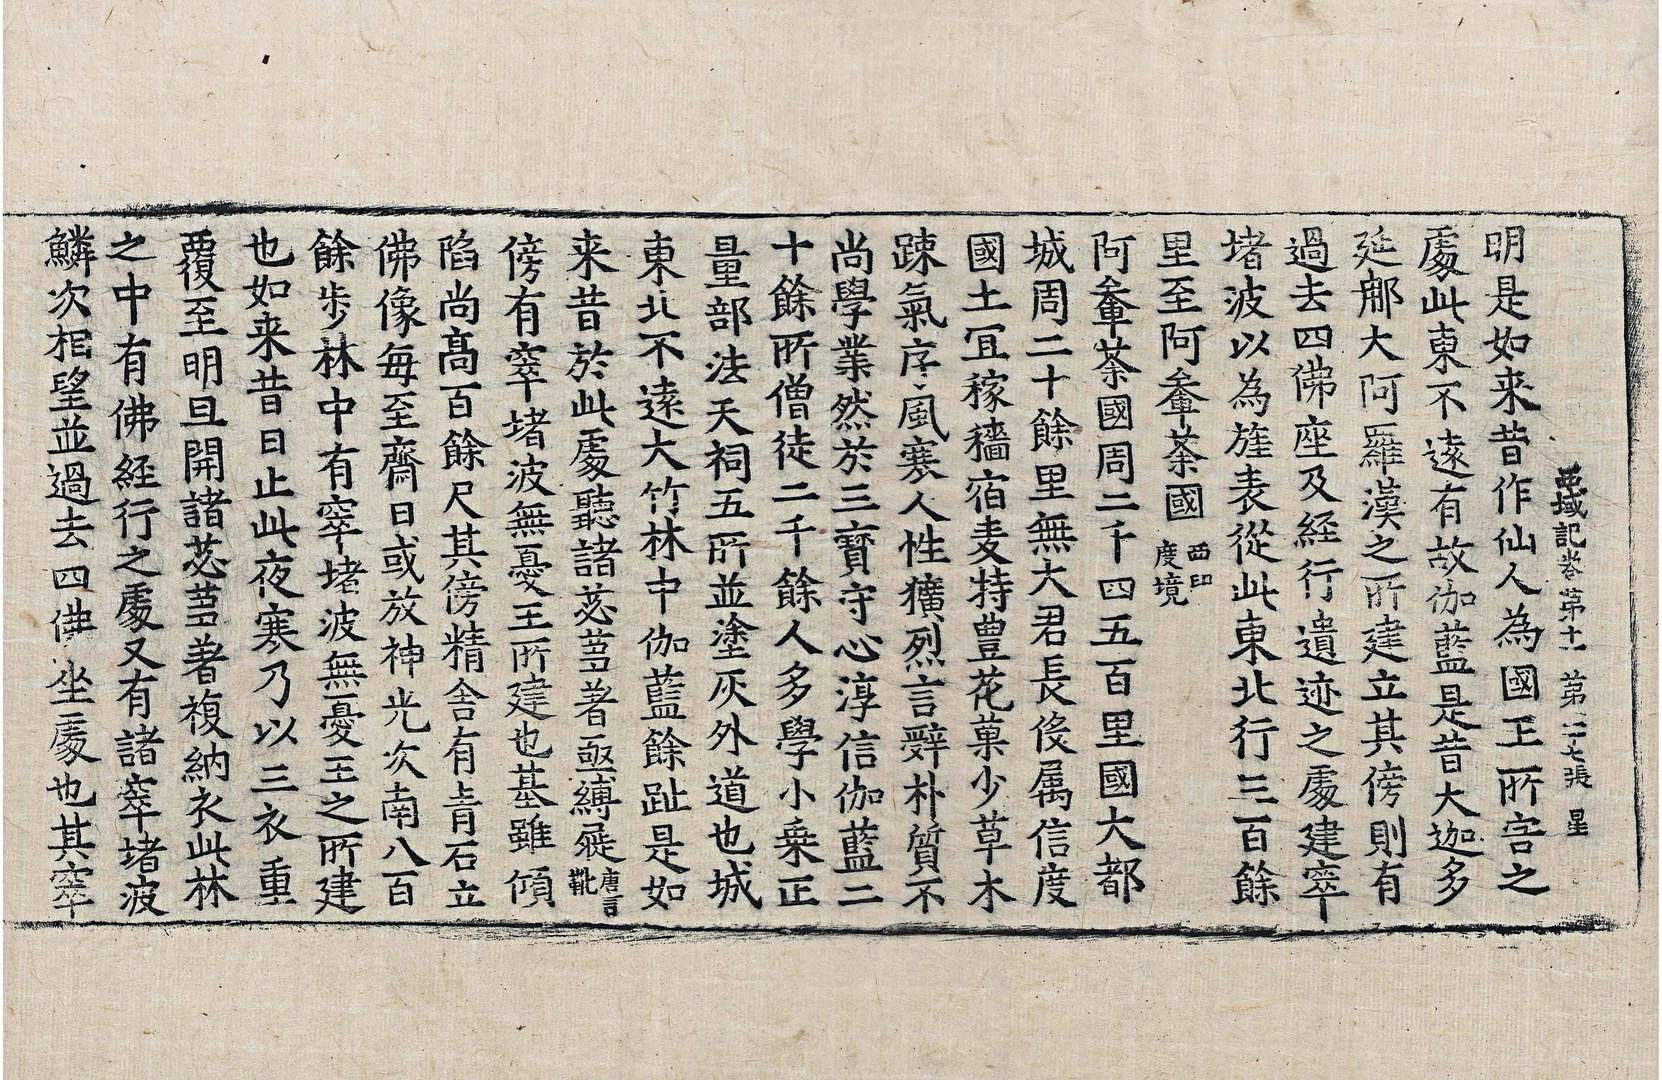 西域記卷第十一 第二七張 星
明是如来昔作仙人為國王所害之
處此東不遠有故伽藍是昔大迦多
延那大阿羅漢之所建立其傍則有
過去四佛座及経行遺迹之處建窣
堵波以為旌表從此東北行三百餘
里至阿軬荼國西印度境
阿軬荼國周二千四五百里國大都
城周二十餘里無大君長役属信度
國土冝稼穡宿麦特豊花菓少草木
踈氣序風寒人性獷烈言辭朴質不
尚學業然於三寳守心淳信伽藍二
十餘所僧徒二千餘人多學小乗正
量部法天祠五所並塗灰外道也城
東北不遠大竹林中伽藍餘趾是如
来昔於此處聽諸苾芻著亟縛屣唐言靴
傍有窣堵波無憂王所建也基雖傾
陷尚髙百餘尺其傍精舎有青石立
佛像每至齋日或放神光次南八百
餘步林中有窣堵波無憂王之所建
也如来昔日止此夜寒乃以三衣重
覆至明旦開諸苾芻著複納衣此林
之中有佛経行之處又有諸窣堵波
鱗次相望並過去四佛坐處也其窣